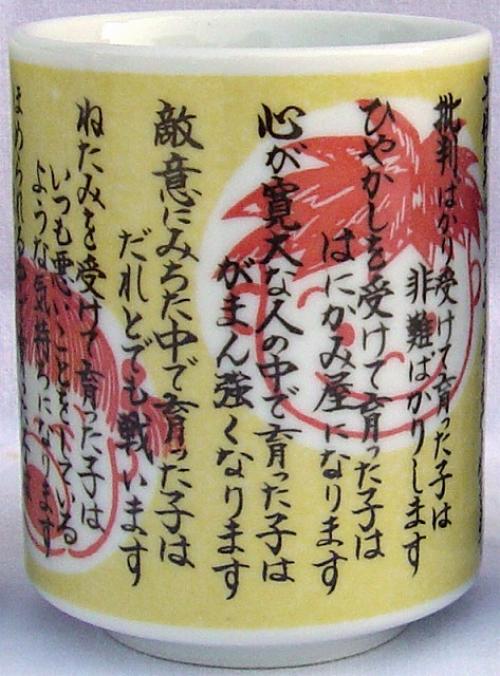 批判ばかり受けて育った子は
非難ばかりします
ひやかしを受けて育った子は
はにかみ屋になります
心が寛大な人の中で育った子は
がまん強くなります
敵意にみちた中で育った子は
だれとでも戦います
ねたみを受けて育った子は
いつも悪いことをしている
ような気持ちになります